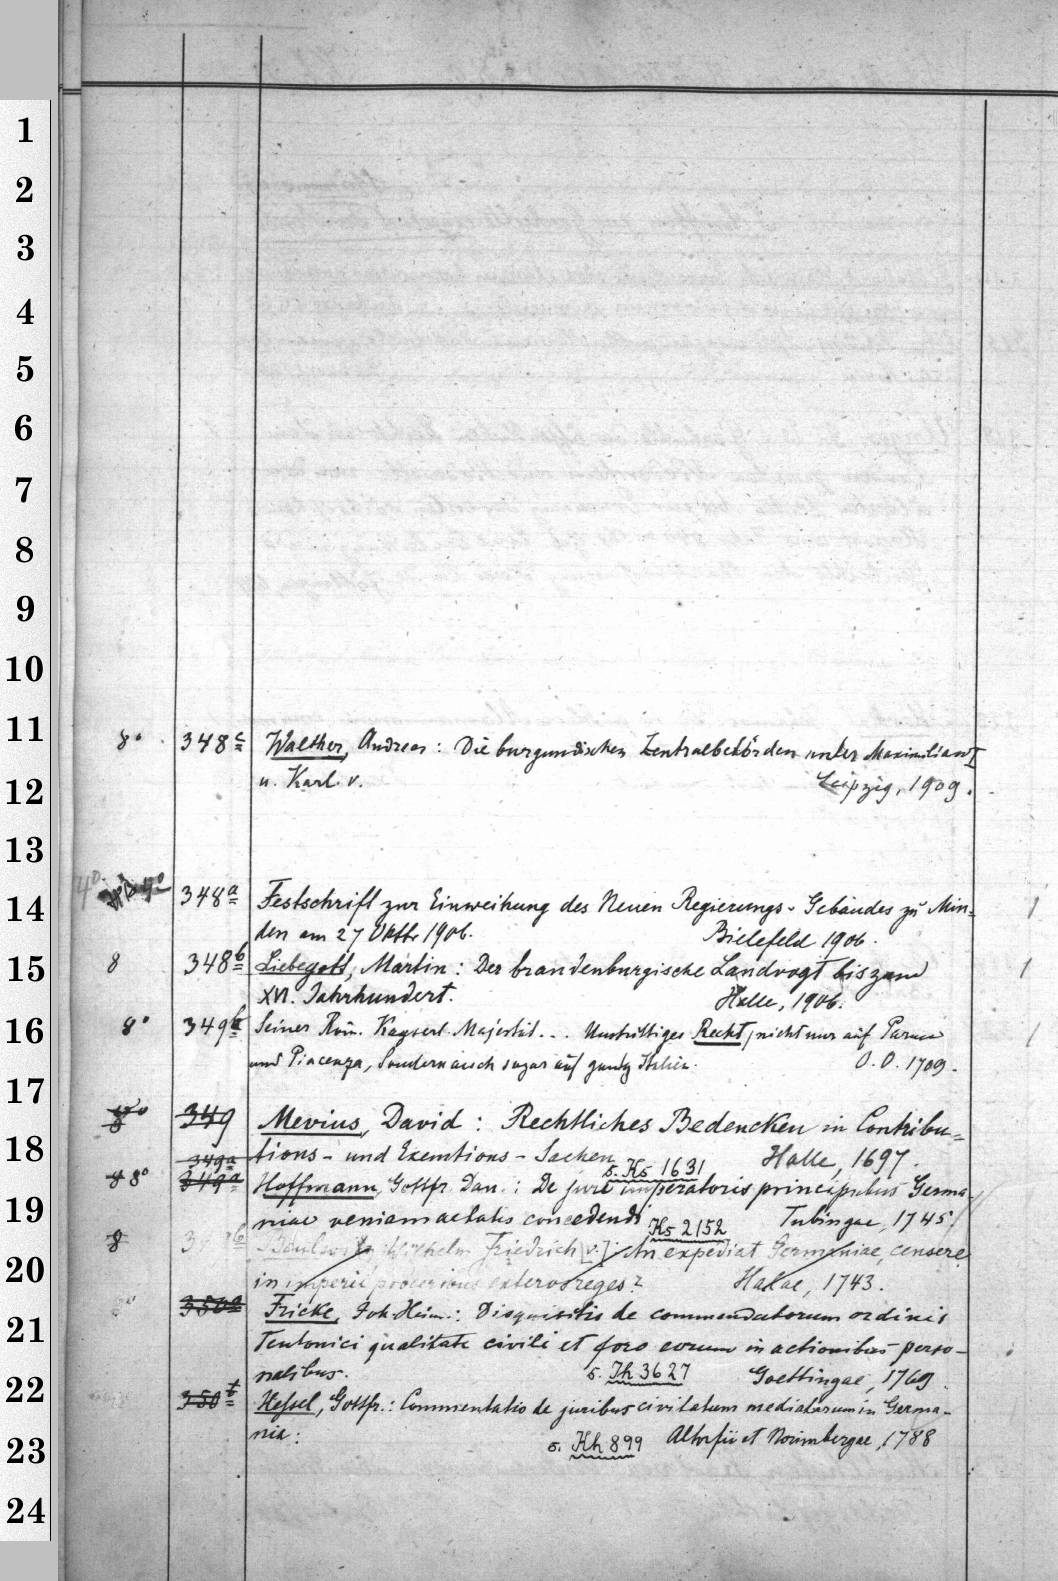 1
2
3
4
5
6
7
8
9
10
11
8° 348c Walther, Andreas: Die burgundischen Zentralbehörden unter Maximilian I
12
u. Karl V. Leipzig, 1909.
13
14
4° 4° 348a Festschrift zur Einweihung des Neuen Regierungs-Gebäudes zu Min=
den am 27 Oktbr. 1906. Bielefeld 1906. 1
15
8 348b Liebegott, Martin: Der brandenburgische Landvogt bis zum 1
XVI. Jahrhundert. Halle, 1906.
16
8° 349b Seiner Röm. Kayserl. Majestät... Unstrittiges Recht, nicht nur auf Parma 1
und Piacenza, Sondern auch sogar auf gantz Italien. O. O. 1709.
17
8° 349 Mevius, David: Rechtliches Bedencken in Contribu=
18
tions- und Exemtions-Sachen Halle, 1697.
349a s. Ks 1631
8° 349a Hoffmann, Gottfr. Dan.: De jure imperatoris principibus Germa-
19
niae veniam aetatis concedendi Tubingae, 1745
Ks 2152
8 Wilhelm Friedrich [v.]: An expediat Germaniae, censere
20
in imperii exteros reges? Halae, 1743.
350a Fricke, Joh. Heinr.: Disquisitio de commendatorum ordinis
21
Teutonici qualitate civili et foro eorum in actionibus perso-
nalibus. s. Th 3627 Goettingae, 1769.
22
350b Hessel, Gottfr.: Commentatio de juribus civitatum mediatarum in Germa-
23
nia: s. Kh 899 Altorfii et Norimbergae, 1788
24